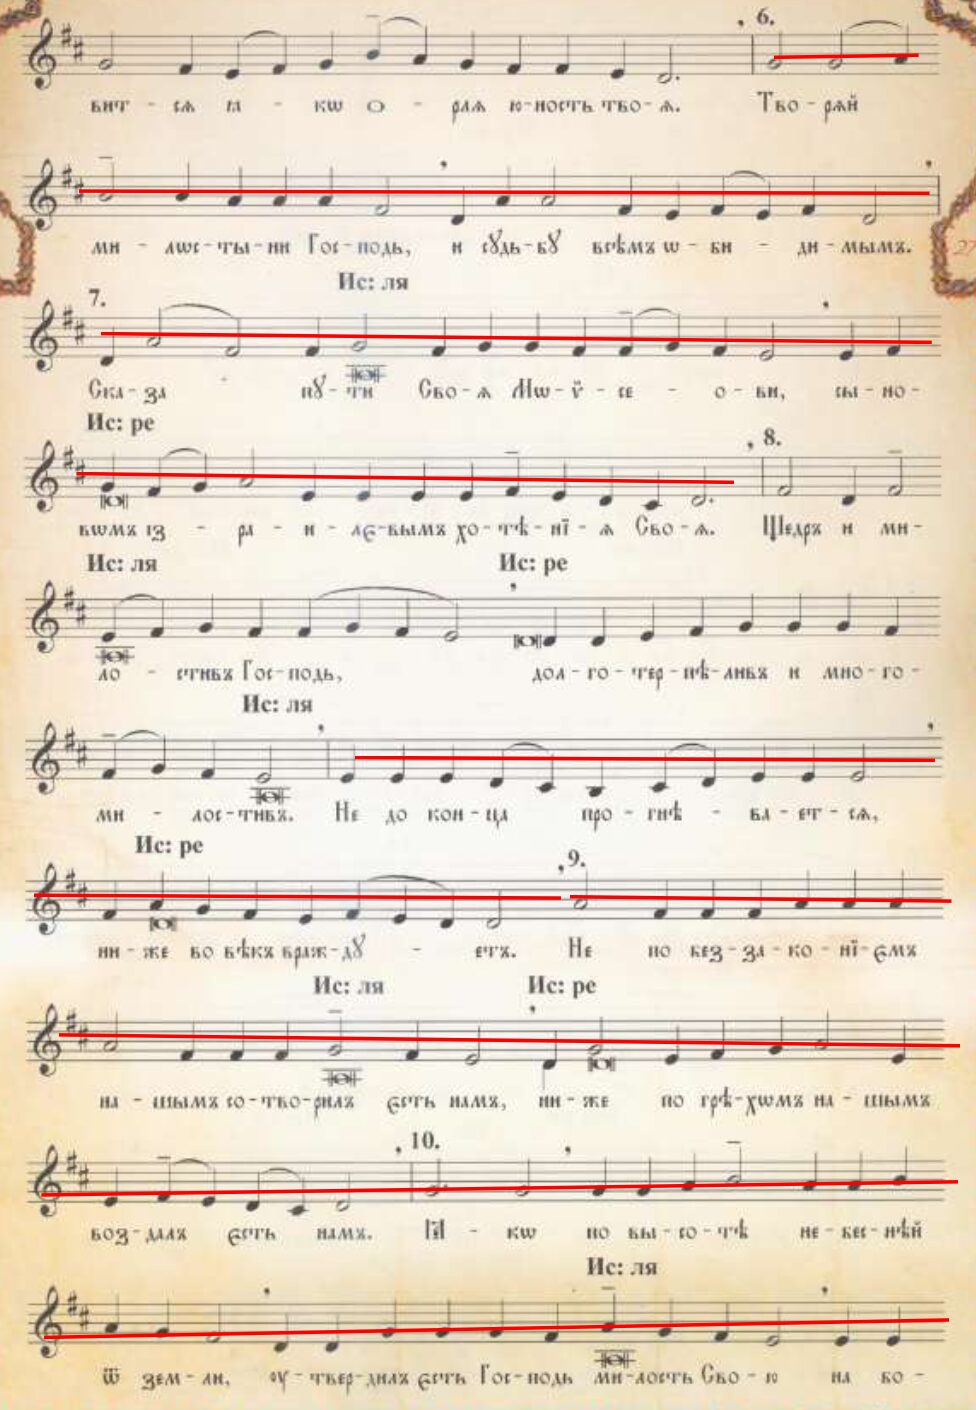 6.
вит - сѧ ꙗ - кѡ ѻ - рлѧ ю-ность тво-ѧ. Тво-рѧй
ми - лѡс-ты-ни Гос-подь, и сꙋдь-бꙋ всѣмъ ѡ-би - ди-мымъ.
27
Ис: ля
7.
Ска-за пꙋ-ти Сво-ѧ Мѡ-ѷ-се - о-ви, сы-но-
Ис: ре
8.
вѡмъ із - ра - и - лєвымъ хо-тѣ-нї-ѧ Сво-ѧ. Щедръ и ми-
Ис: ля Ис: ре
ло - стивъ Гос-подь, дол-го-тер-пѣ-ливъ и мно-го-
Ис: ля
ми - лос-тивъ. Не до кон-ца про-гнѣ - ва-ет-сѧ,
Ис: ре
9.
ни-же во вѣкъ враж-дꙋ - етъ. Не по без-за-ко-нї-ємъ
Ис: ля Ис: ре
на - шымъ со-тво-рилъ єсть намъ, ни-же по грѣ-хѡмъ на-шымъ
10.
воз-далъ єсть намъ. Ꙗ - кѡ по вы-со-тѣ не-бес-нѣй
Ис: ля
ѿ зем-ли, оу-твер-дилъ єсть Гос-подь ми-лость Сво-ю на бо-